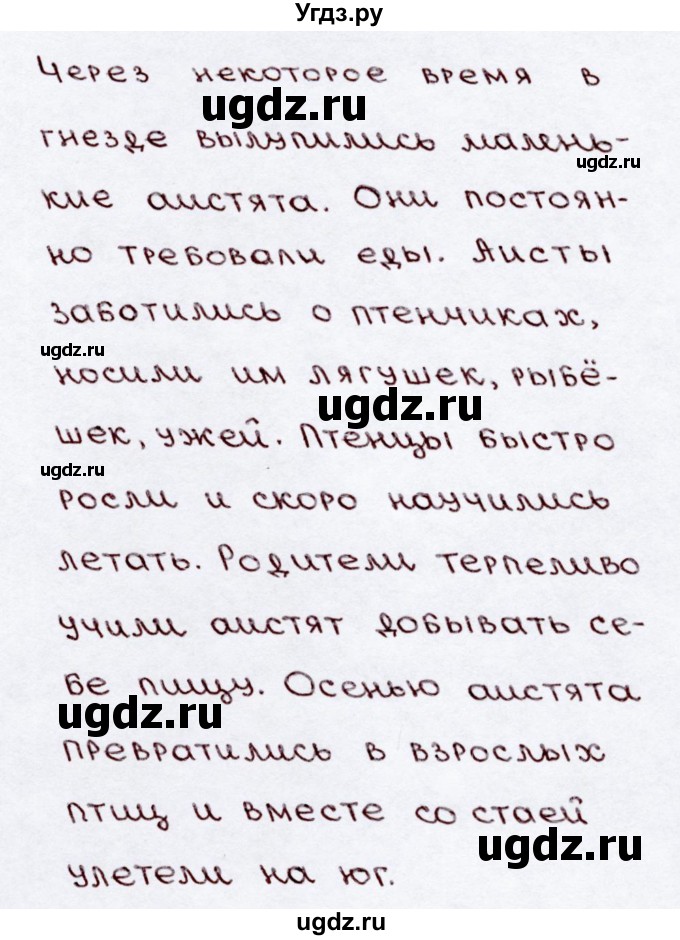 Угдз.ру
Через некоторое время в
ugdz.ru
гнезде вылупились малень-
ugdz.ru
кие аистята. Они постоян-
но требовали еды. Аисты
заботились о птенчиках,
ugdz.ru
носили им лягушек, рыбё-
ugdz.ru
шек, ужей. Птенцы быстро
ugdz.ru
росли и скоро научились
летать. Родители терпеливо
учили аистят добывать се-
бе пищу. Осенью аистята
ugdz.ru
превратились в взрослых
птиц и вместе со стаей
ugdz.ru
улетели на юг.
ugdz.ru